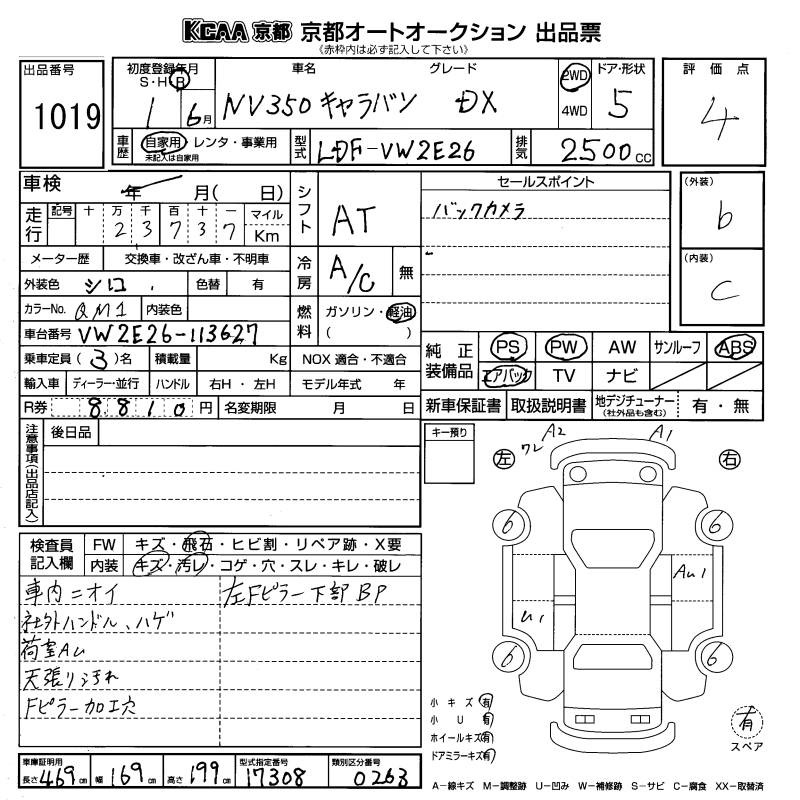 KCAA 京都 京都オートオークション 出品票
《赤枠内は必ず記入して下さい》
出品番号
1019
初度登録年月 車名 グレード 2WD ドア・形状
S・H・R
1 6月 NV350 キャラバン DX 4WD 5
車歴 自家用 レンタ・事業用 型式 LDF-VW2E26 排気 2500cc
未記入は自家用
評価点
4
車検 年 月( 日)
走行 記号 十 万 千 百 十 一 マイル
2 3 7 3 7 Km
メーター歴 交換車・改ざん車・不明車
外装色 シロ 色替 有
カラーNo. QM1 内装色
車台番号 VW2E26-113627
乗車定員 (3)名 積載量 Kg NOX 適合・不適合
輸入車 ディーラー・並行 ハンドル 右H・左H モデル年式 年
R券 8810円 名変期限 月 日
シフト AT
冷房 A/C 無
燃料 ガソリン・軽油
( )
セールスポイント
バックカメラ
(外装)
b
(内装)
C
純正装備品 PS PW AW サンルーフ ABS
エアバック TV ナビ
新車保証書 取扱説明書 地デジチューナー 有・無
(社外品も含む)
注意事項(出品店記入) 後日品
キー預り
ワレ A2 A1
左 右
6 6
Au1
U1
6 6
検査員記入欄 FW キズ・飛石・ヒビ割・リペア跡・X要
内装 キズ・汚レ・コゲ・穴・スレ・キレ・破レ
車内ニオイ 左Fピラー下部BP
社外ハンドル、ハゲ
荷室AU
天張り汚れ
Fピラー加工穴
小キズ 有
小U 有
ホイールキズ 有
ドアミラーキズ 有
有
スペア
車庫証明用 長さ 469cm 幅 169cm 高さ 199cm 型式指定番号 17308 類別区分番号 0263
A-線キズ M-調整跡 U-凹み W-補修跡 S-サビ C-腐食 XX-取替済